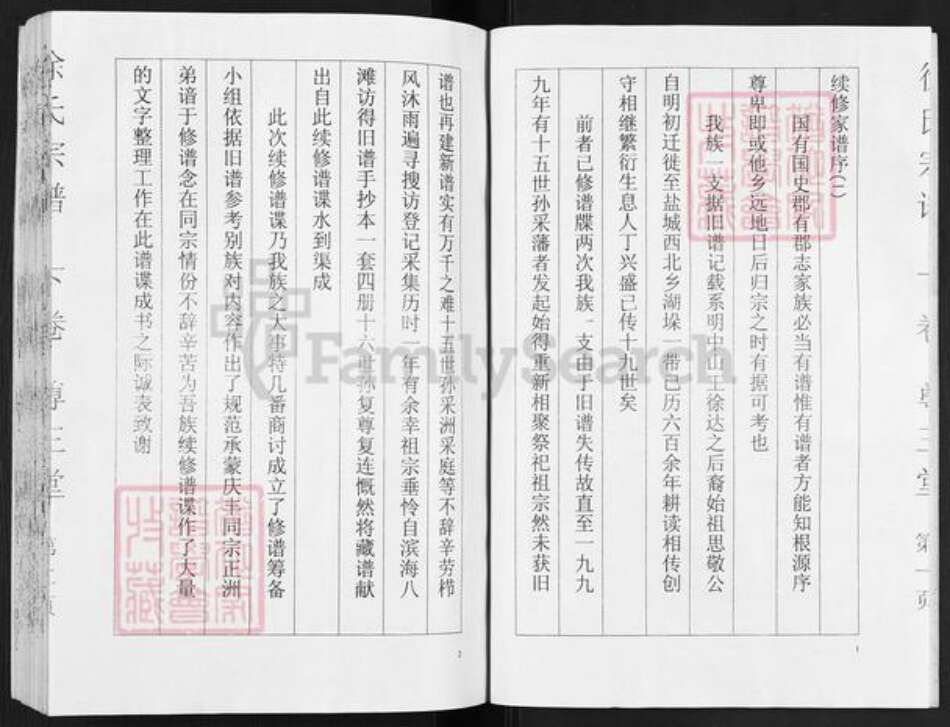 续修家谱序(一)
国有国史郡有郡志家族必当有谱惟有谱者方能知根源序
尊卑即或他乡远地日后归宗之时有据可考也
我族一支据旧谱记载系明中山王徐达之后裔始祖思敬公
自明初迁徙至盐城西北乡湖垛一带已历六百余年耕读相传创
守相继繁衍生息人丁兴盛已传十九世矣
前者已修谱牒两次我族一支由于旧谱失传故直至一九九
九年有十五世孙采藩者发起始得重新相聚祭祀祖宗然未获旧
1
谱也再建新谱实有万千之难十五世孙采洲采庭等不辞辛劳栉
风沐雨遍寻搜访登记采集历时一年有余幸祖宗垂怜自滨海八
滩访得旧谱手抄本一套四册十六世孙复尊复连慨然将藏谱献
出自此续修谱谍水到渠成
此次续修谱谍乃我族之大事特几番商讨成立了修谱筹备
小组依据旧谱参考别族对内容作出了规范承蒙庆丰同宗正洲
弟谙于修谱念在同宗情份不辞辛苦为吾族续修谱谍作了大量
的文字整理工作在此谱谍成书之际诚表致谢
2
徐氏宗谱 卷 尊三堂 第 页
FamilySearch